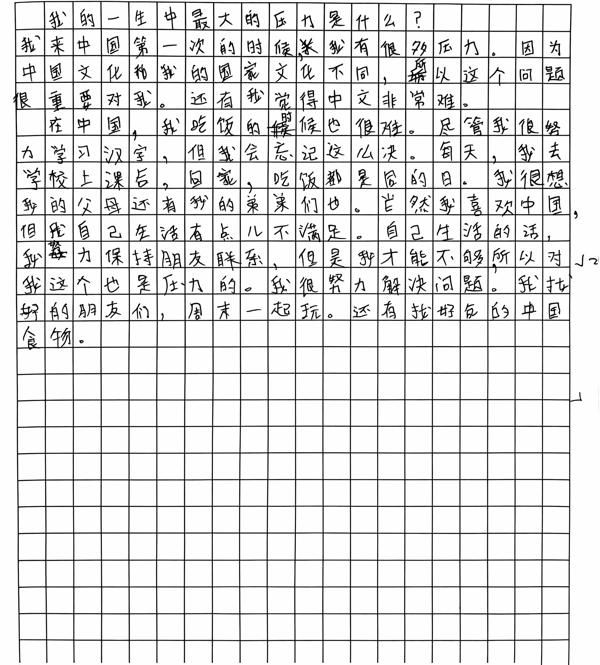 我的一生中最大的压力是什么？
我来中国第一次的时候，我有很多压力。因为
中国文化和我的国家文化不同，所以这个问题
很重要对我。还有我觉得中文非常难。
在中国，我吃饭的时候也很难。尽管我很努
力学习汉字，但我会忘记这么决。每天，我去
学校上课后，回家，吃饭都是同的日。我很想
我的父母还有我的弟弟们也。虽然我喜欢中国，
但我自己生活有点儿不满足。自己生活的话，
我努力保持朋友联系，但是我才能不够，所以对
我这个也是压力的。我很努力解决问题。我找
好的朋友们，周末一起玩。还有找好包的中国
食物。